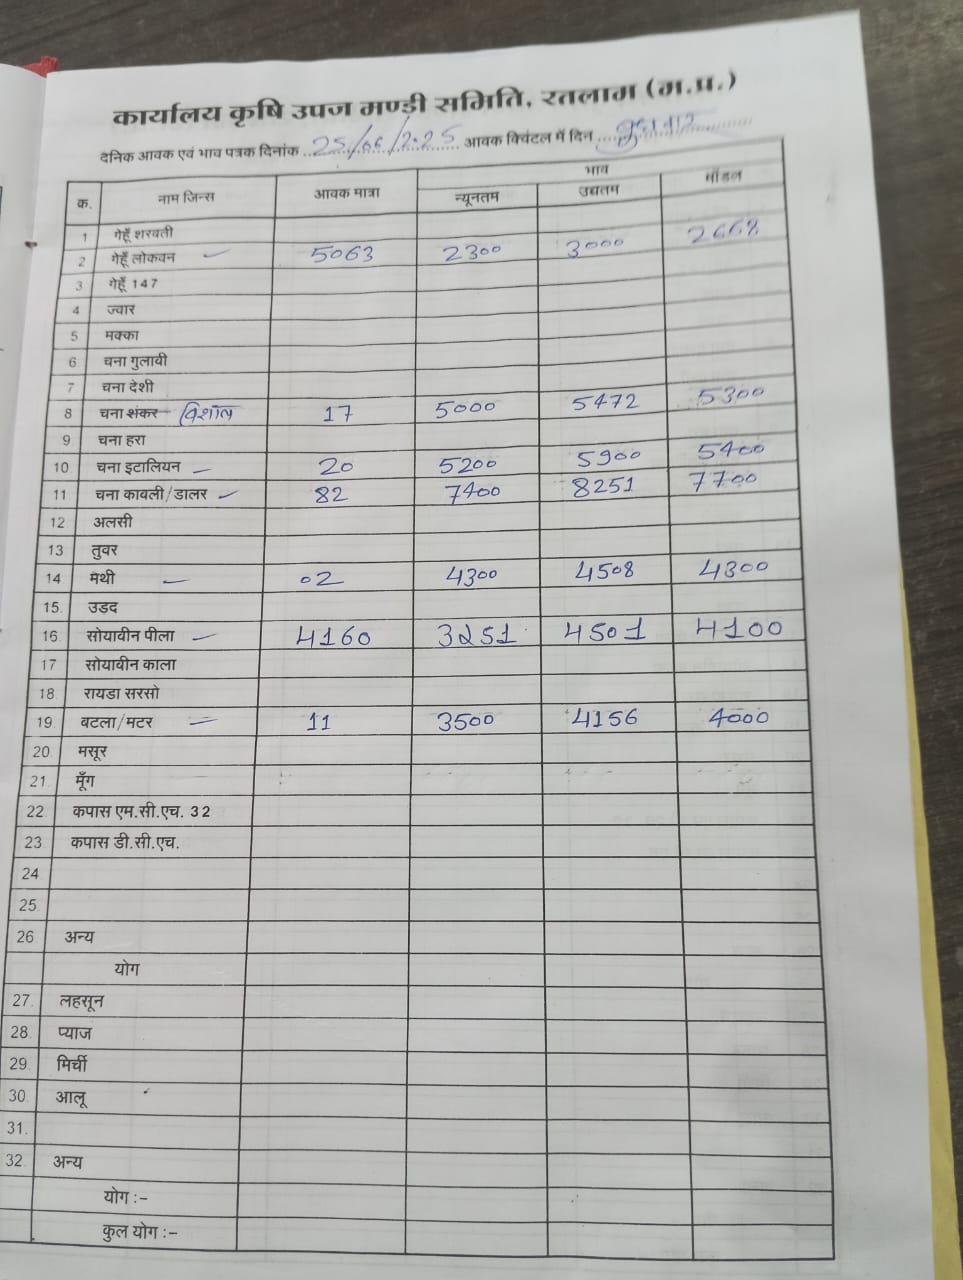 कार्यालय कृषि उपज मण्डी समिति, रतलाम (म.प्र.)
दैनिक आवक एवं भाव पत्रक दिनांक 25/06/2025 आवक क्विंटल में दिन बुधवार
क. नाम जिन्स आवक मात्रा भाव
न्यूनतम उच्चतम मॉडल
1 गेहूँ शरबती
2 गेहूँ लोकवन 5063 2300 3000 2668
3 गेहूँ 147
4 ज्वार
5 मक्का
6 चना गुलाबी
7 चना देशी
8 चना शंकर विशाल 17 5000 5472 5300
9 चना हरा
10 चना इटालियन 20 5200 5900 5400
11 चना काबली/डालर 82 7400 8251 7700
12 अलसी
13 तुवर
14 मैथी 02 4300 4508 4300
15. उड़द
16 सोयाबीन पीला 4160 3251 4501 4100
17 सोयाबीन काला
18. रायडा सरसो
19. बटला/मटर 11 3500 4156 4000
20. मसूर
21. मूँग
22. कपास एम.सी.एच. 32
23. कपास डी.सी.एच.
24
25.
26 अन्य
योग
27. लहसून
28. प्याज
29. मिर्ची
30. आलू
31.
32. अन्य
योग :-
कुल योग :-